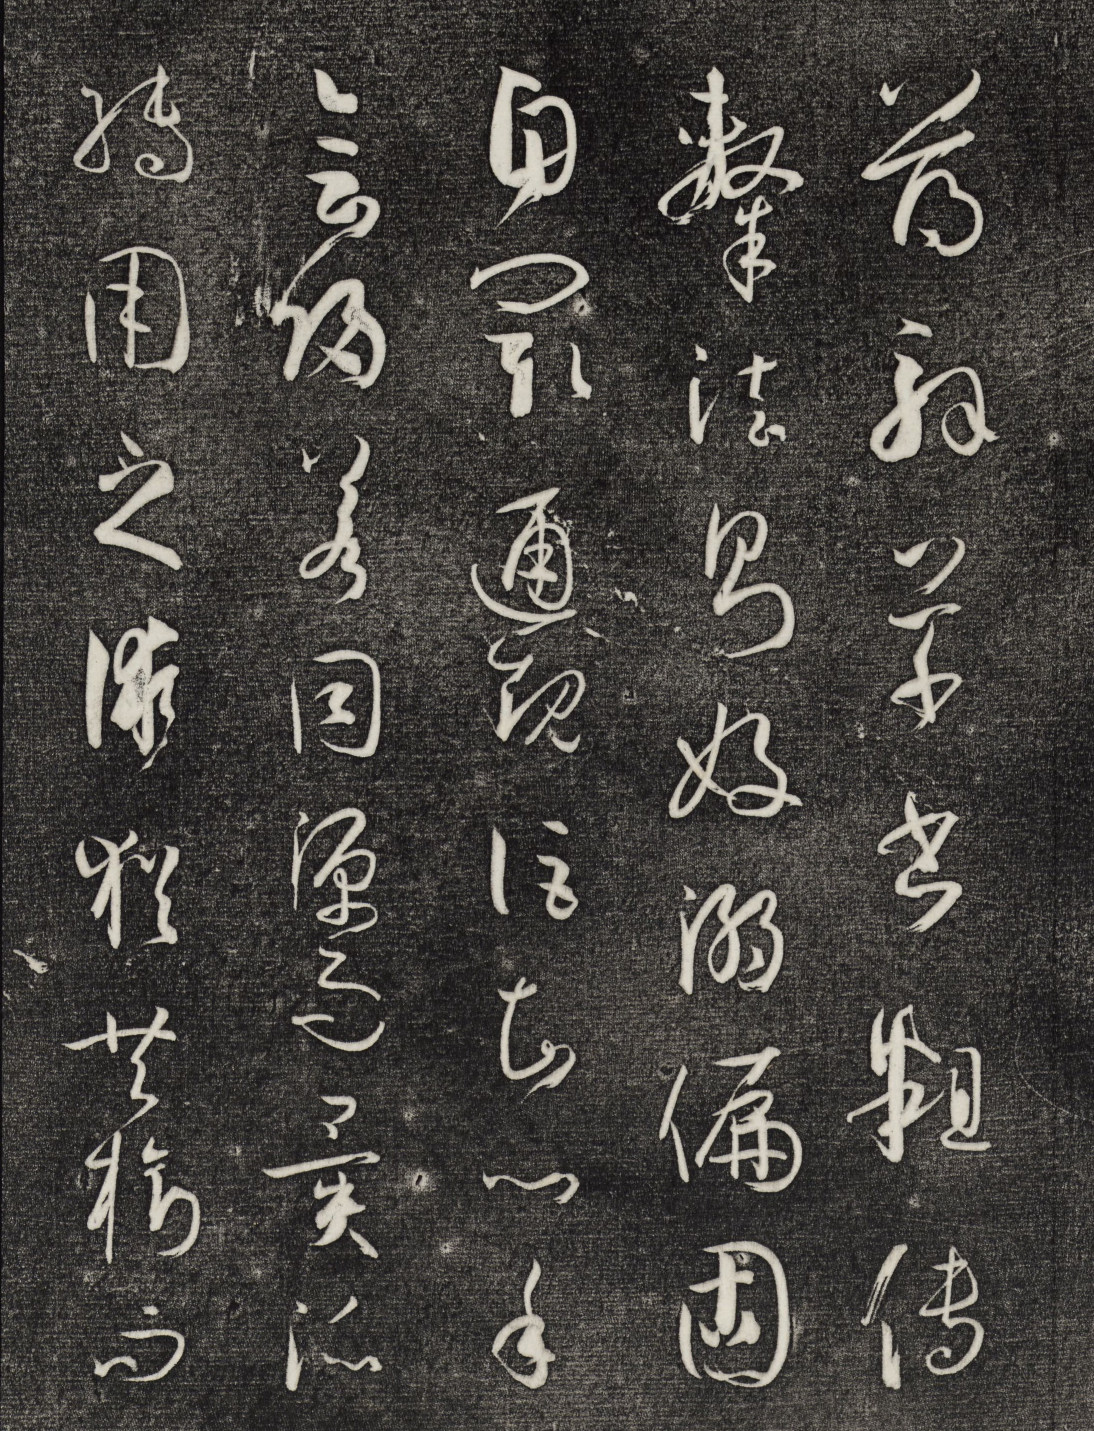 薄解草書粗傳
隸法則好溺偏固
自閡通規詎知心手
會歸若同源而異派
轉用之術猶共樹而